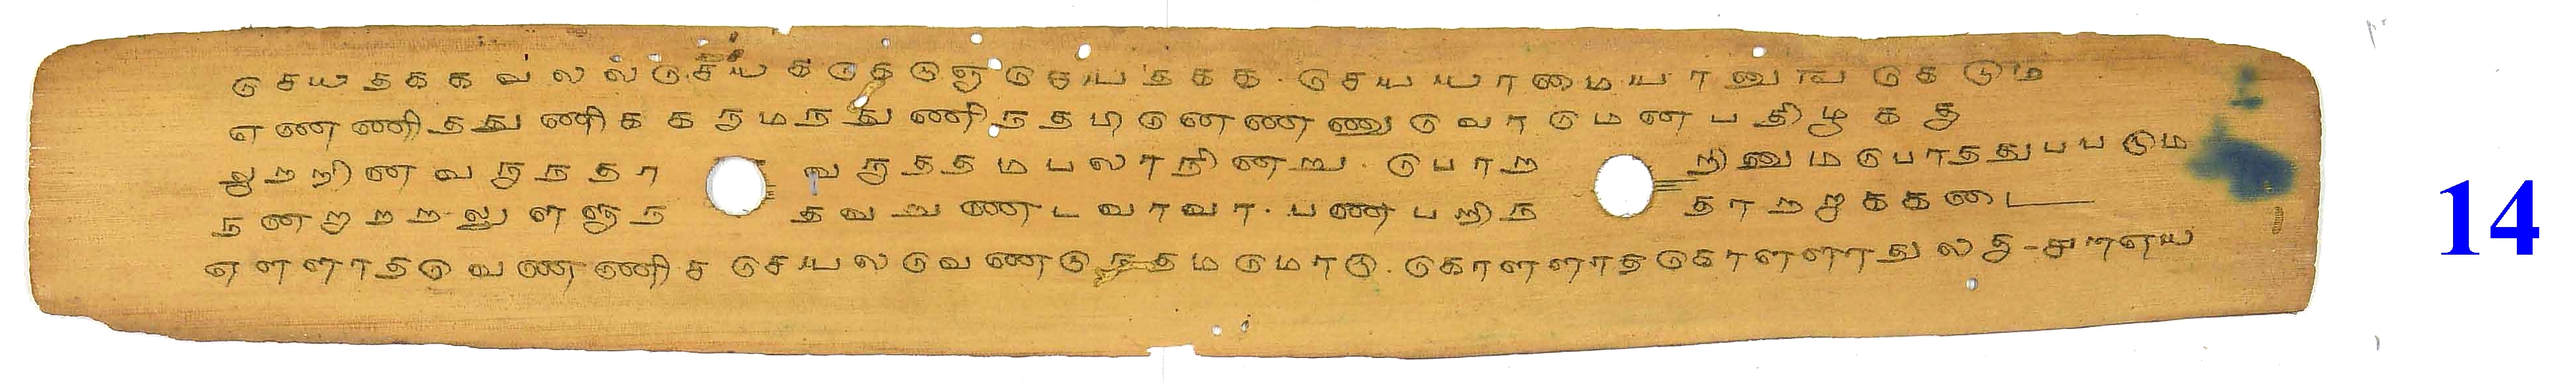 செயதககவலலசெயககெடுஞசெயதகக. செயயாமையானுஙகெடும
எணணிததுணிகககருமநதுணிநதபினெணணுவொமெனபதிழுககு
ஆறறினவருநதாவருததமபலரநினறு. பொறறினுமபொததுபபடும
நனறறறலுளளுநதவறுணடவரவர. பணபறிநதாறறககடை
எளளாதவெணணிசசெயலவெணடுநதமமொடு. கொளளாதகொளளாதுலகு-
14